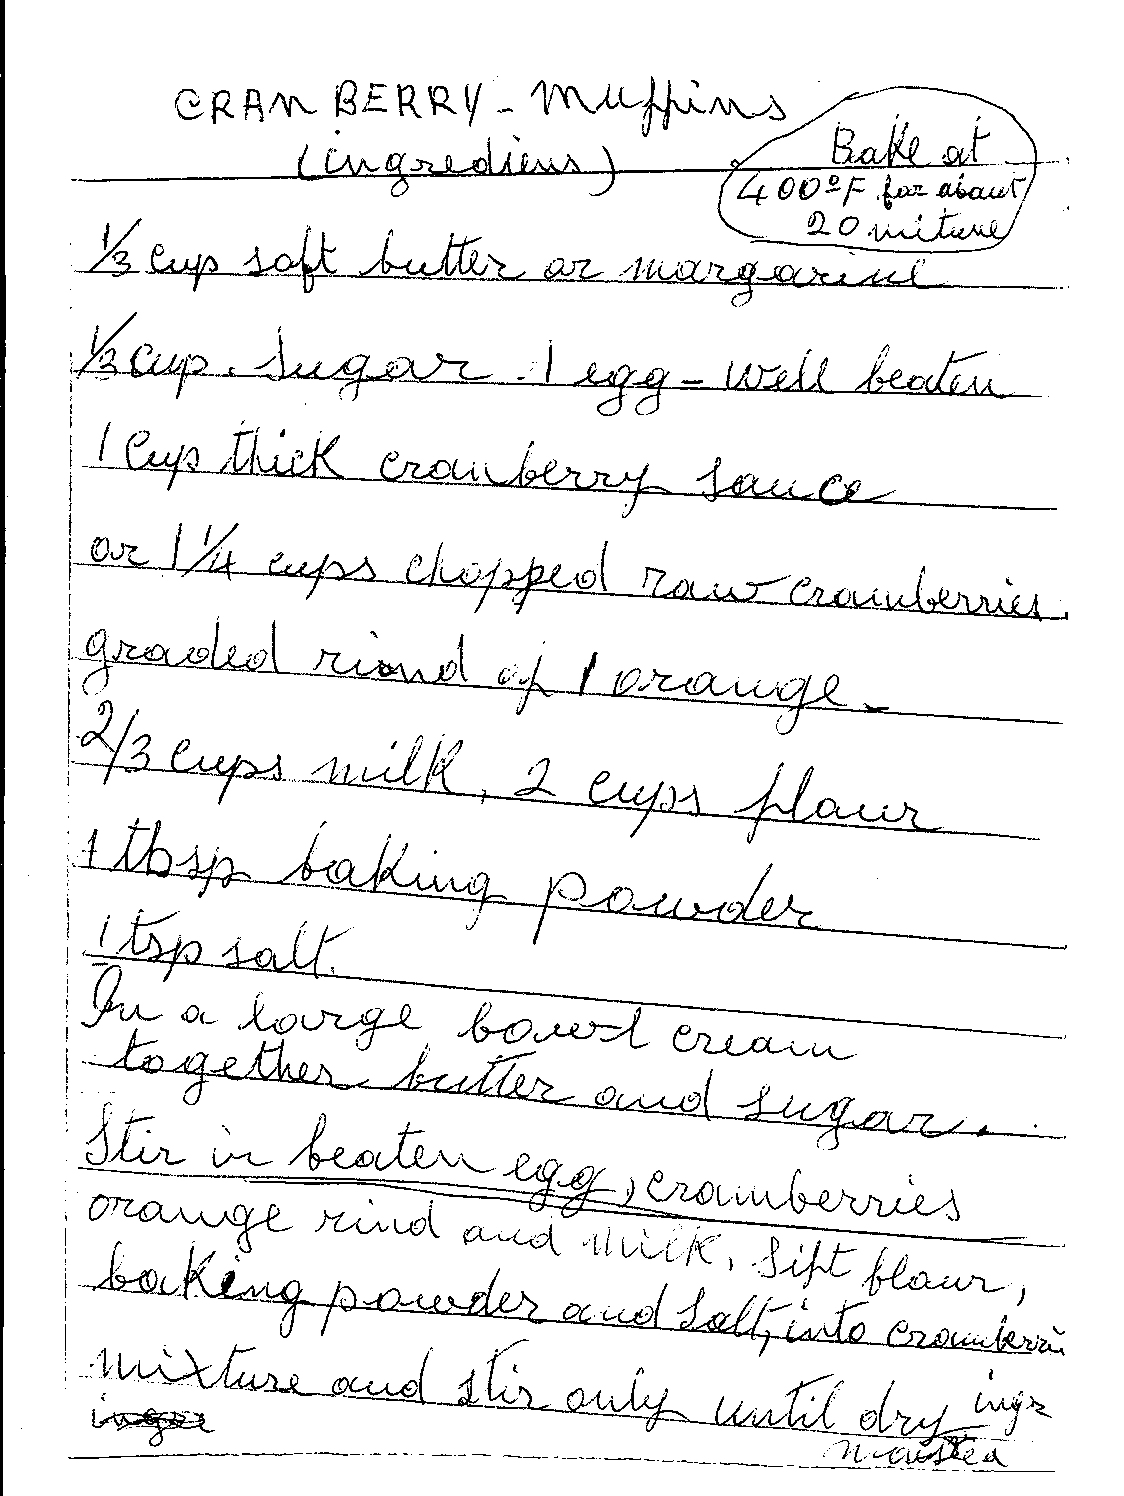 CRANBERRY - Muffins
(ingrediens)
Bake at
400ºF for about
20 mitune
1/3 cup soft butter or margarine
1/2 cup. sugar. 1 egg - well beaten
1 cup thick cranberry sauce
or 1 1/4 cups chopped raw cramberries.
graded rind of 1 orange -
2/3 cups milk, 2 cups flour
1 tbsp baking powder
1 tsp salt.
In a large bowl cream
together butter and sugar.
Stir in beaten egg, cramberries
orange rind and milk. Sift flour,
baking powder and salt, into cramberri
mixture and stir only until dry ingr
moisted